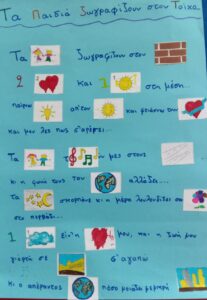 Τα Παιδιά Ζωγραφίζουν στον Τοίχο
Τα ζωγραφίζουν στον
2 και 1 στη μέση
παίρνω απ' τον και φτιάχνω την
και μου λες πως σ' αρέσει.
Τα τ ν μες στους
κι η φωνή τους τον αλλάζει
τα σκορπάνε κι η μέρα λουλουδίζει σα
στο περβάζι.
1 είν' η μου, και η ζωή μου
γιορτή σε σ' αγαπώ
Κι ο απέραντος πόσο μοιάζει